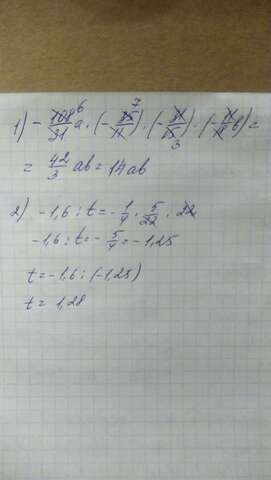 1) - 108/31 a · (- 35/11) · (- 31/15) · (- 11/18 b) =
6 7 3
= 42/3 ab = 14ab
2) -1,6 : t = - 1/4 · 5/22 · 22
-1,6 : t = - 5/4 = -1,25
t = -1,6 : (-1,25)
t = 1,28